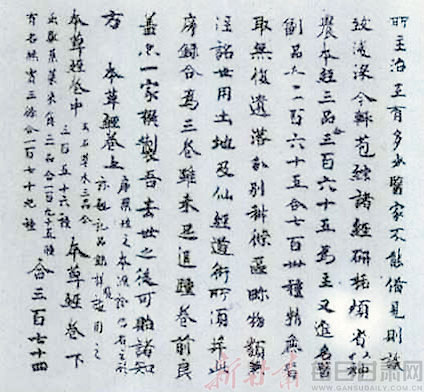 所主治互有多少醫家不能備見則識
致浅深今輙苞綜諸經研括煩省以神
農本經三品合三百六十五為主又進名醫
副品亦三百六十五合七百卅種精麁皆
取無復遺落分別科條區畛物類兼
注詺世用土地及仙經道術所須并此
序録合為三卷雖未足追踵卷前良
盖亦一家撰製吾去世之後可貽諸知
方 本草經卷上 序藥性之本源詮病名之形
題記品録詳覽施用之
本草經卷中 玉石草木三品合
三百五十六種 本草經卷下
虫獸菓菜米食三品合一百九十五種
有名無實三條合一百七十九種 合三百七十四
新甘肃
每日甘肃网